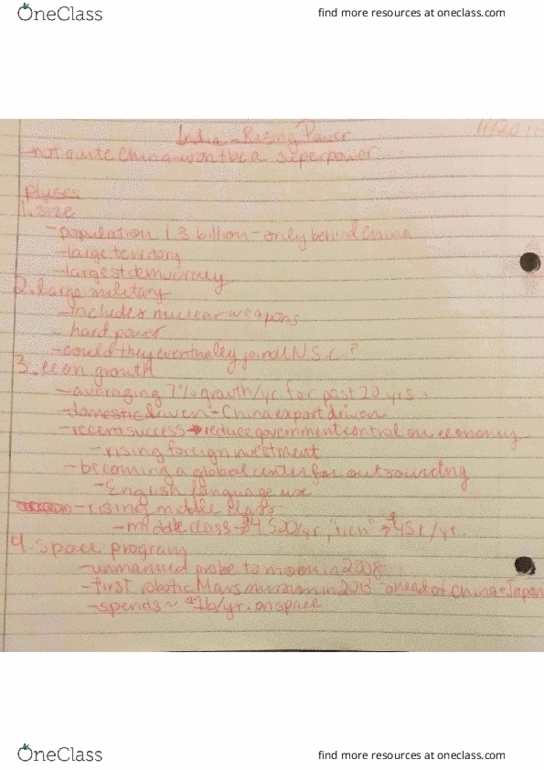 OneClass
find more resources at oneclass.com
India - Rising Power
11/20
-not quite China-won't be a superpower
pluses
1. size
-population 1.3 billion - only behind China
-large territory
-largest democracy
2. large military
-includes nuclear weapons
-hard power
-could they eventually join U.N.S.C.?
3. econ growth
-averaging 7% growth/yr. for past 20 yrs.
-domestic driven - China export driven
-recent success → reduce government control on economy
-rising foreign investment
-becoming a global center for outsourcing
-English language use
-rising middle class
-middle class - $4,500/yr, "rich" = $45k/yr.
4. space program
-unmanned probe to moon in 2008
-first robotic Mars mission in 2013 - ahead of China + Japan
-spends ~ $1b/yr. on space
OneClass
find more resources at oneclass.com